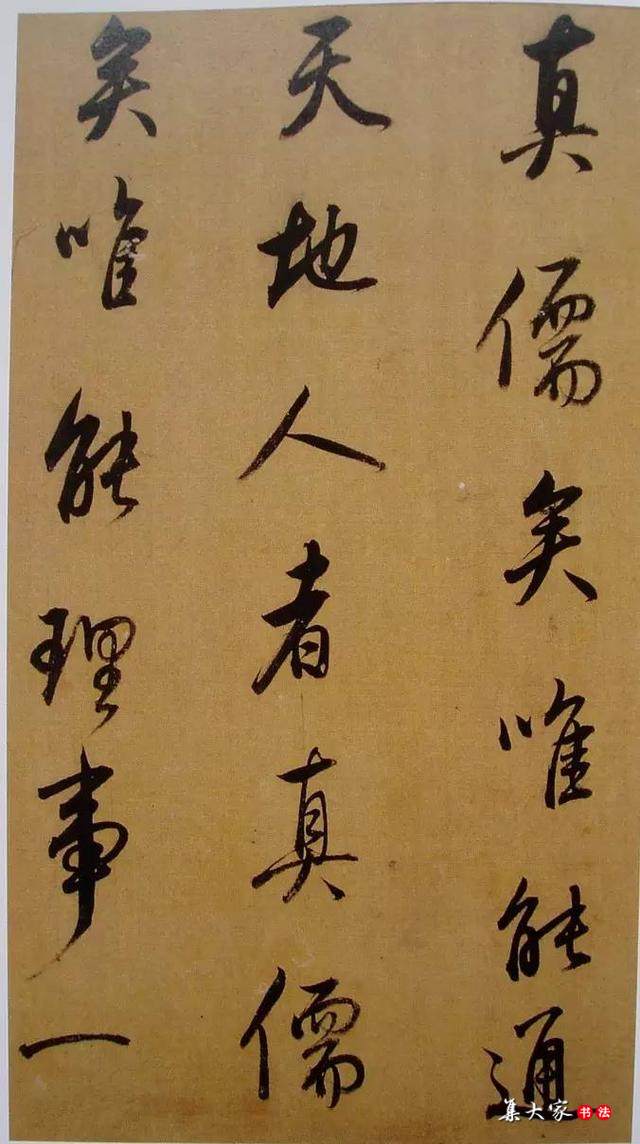 真儒矣唯能通
天地人者真儒
矣唯能理事一
集大家书法